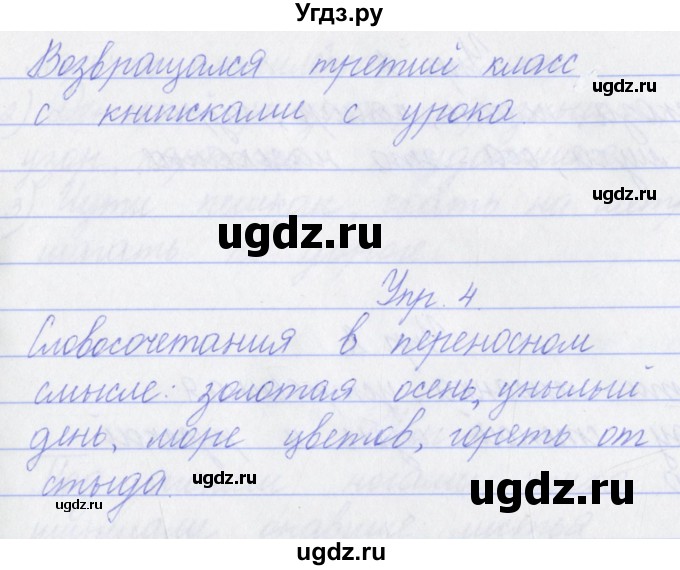 Угдз.ру
Возвращался третий класс
с книжками с урока.
ugdz.ru
ugdz.ru
ugdz.ru
Упр. 4.
Словосочетания в переносном
смысле: золотая осень, унылый
день, море цветов, гореть от
стыда.
ugdz.ru
ugdz.ru
ugdz.ru